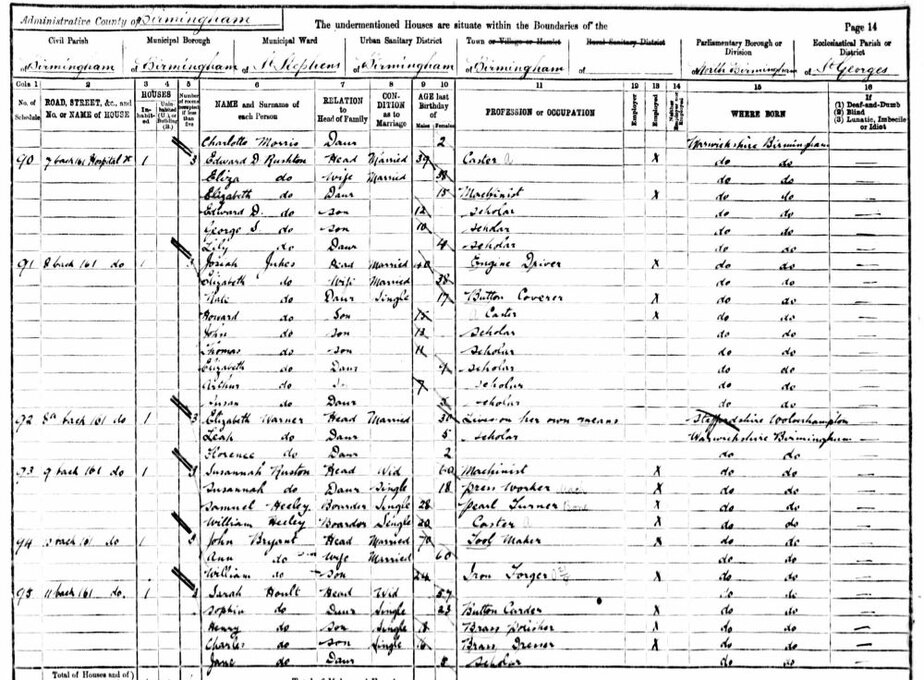 Administrative County of Birmingham
The undermentioned Houses are situate within the Boundaries of the
Page 14
Civil Parish Municipal Borough Municipal Ward Urban Sanitary District Town or Village or Hamlet Rural Sanitary District Parliamentary Borough or Division Ecclesiastical Parish or District
of Birmingham of Birmingham of St Stephens of Birmingham of Birmingham of of North Birmingham of St Georges
Cols 1 2 3 4 5 6 7 8 9 10 11 12 13 14 15 16
No. of Schedule ROAD, STREET, &c., and No. or NAME of HOUSE HOUSES Inhabited Uninhabited (U.) or Building (B.) Number of rooms occupied if less than five NAME and Surname of each Person RELATION to Head of Family CONDITION as to Marriage AGE last Birthday of Males Females PROFESSION or OCCUPATION Employer Employed Neither Employer nor Employed WHERE BORN If (1) Deaf-and-Dumb (2) Blind (3) Lunatic, Imbecile or Idiot
Charlotte Morris Daur 2 Warwickshire Birmingham
90 7 back 161 Hospital St 1 3 Edward D Rushton Head Married 39 Caster X do do
Eliza do Wife Married 38 do do
Elizabeth do Daur 15 Machinist X do do
Edward D. do Son 12 Scholar do do
George S. do Son 10 Scholar do do
Lily do Daur 4 Scholar do do
91 8 back 161 do 1 Josiah Jukes Head Married 40 Engine Driver X do do
Elizabeth do Wife Married 38 do do
Kate do Daur Single 17 Button Coverer X do do
Howard do Son 15 Caster X do do
John do Son 13 Scholar do do
Thomas do Son 11 Scholar do do
Elizabeth do Daur 9 Scholar do do
Arthur do 7 Scholar do do
Susan do Daur Scholar do do
92 8a back 161 do 1 3 Elizabeth Warner Head Married 30 Lives on her own means Staffordshire Wolverhampton
Leah do Daur 5 Scholar Warwickshire Birmingham
Florence do Daur 2 do do
93 9 back 161 do 1 3 Susannah Ruston Head Wid 60 Machinist X do do
Susannah do Daur Single 18 Press Worker X do do
Samuel Heeley Boarder Single 28 Pearl Turner X do do
William Heeley Boarder Single 20 Caster X do do
94 back 161 do 1 John Bryant Head Married 70 Tool Maker X do do
Ann do Wife Married 60 do do
William do Son 24 Iron Forger X do do
95 11 back 161 do 1 Sarah Hoult Head Wid 57 do do
Sophia do Daur Single 23 Button Carder X do do
Henry do Son Single Brass Polisher X do do
Charles do Son Single Brass Dresser X do do
Jane do Daur 8 Scholar do do
Total of Houses and of